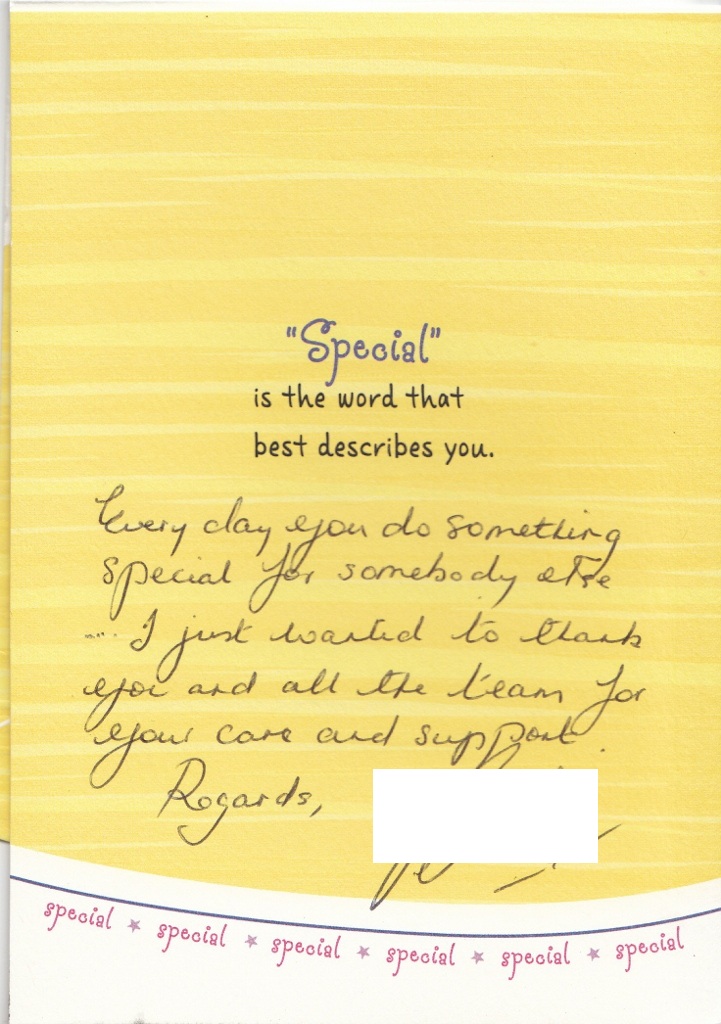 "Special"
is the word that
best describes you.
Every day you do something
special for somebody else
..... I just wanted to thank
you and all the team for
your care and support.
Regards,
special ★ special ★ special ★ special ★ special ★ special